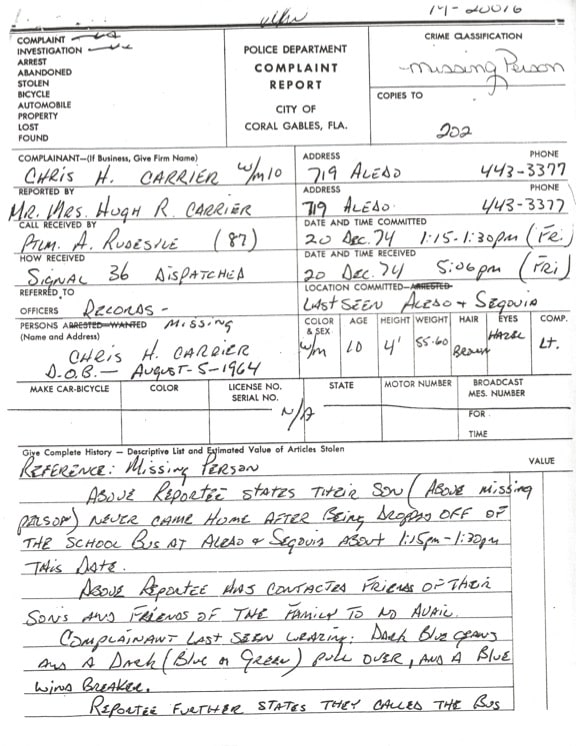 14-20016
COMPLAINT
INVESTIGATION
ARREST
ABANDONED
STOLEN
BICYCLE
AUTOMOBILE
PROPERTY
LOST
FOUND
POLICE DEPARTMENT
COMPLAINT
REPORT
CITY OF
CORAL GABLES, FLA.
CRIME CLASSIFICATION
Missing Person
COPIES TO
202
COMPLAINANT—(If Business, Give Firm Name)
CHRIS H. CARRIER W/M10
ADDRESS PHONE
719 ALEDO 443-3377
REPORTED BY
MR. MRS. HUGH R. CARRIER
ADDRESS PHONE
719 ALEDO. 443-3377
CALL RECEIVED BY
PTLM. A. RUDESILE (87)
DATE AND TIME COMMITTED
20 DEC. 74 1:15-1:30pm (FRI)
HOW RECEIVED
SIGNAL 36 DISPATCHED
DATE AND TIME RECEIVED
20 DEC. 74 5:06pm (FRI)
REFERRED TO
OFFICERS RECORDS-
LOCATION COMMITTED—ARRESTED
LAST SEEN ALEDO & SEGOVIA
PERSONS ARRESTED-WANTED MISSING
(Name and Address)
CHRIS H. CARRIER
D.O.B. — AUGUST-5-1964
COLOR & SEX AGE HEIGHT WEIGHT HAIR EYES COMP.
W/M 10 4' 55-60 BROWN HAZEL LT.
MAKE CAR-BICYCLE COLOR LICENSE NO. SERIAL NO. STATE MOTOR NUMBER BROADCAST MES. NUMBER
N/A
FOR
TIME
Give Complete History — Descriptive List and Estimated Value of Articles Stolen VALUE
REFERENCE: MISSING PERSON
ABOVE REPORTEE STATES THEIR SON (ABOVE MISSING
PERSON) NEVER CAME HOME AFTER BEING DROPED OFF OF
THE SCHOOL BUS AT ALEDO & SEGOVIA ABOUT 1:15pm-1:30pm
THIS DATE.
ABOVE REPORTEE HAS CONTACTED FRIENDS OF THEIR
SONS AND FRIENDS OF THE FAMILY TO NO AVAIL.
COMPLAINANT LAST SEEN WEARING: DARK BLUE JEANS
AND A DARK (BLUE OR GREEN) PULL OVER, AND A BLUE
WIND BREAKER.
REPORTEE FURTHER STATES THEY CALLED THE BUS